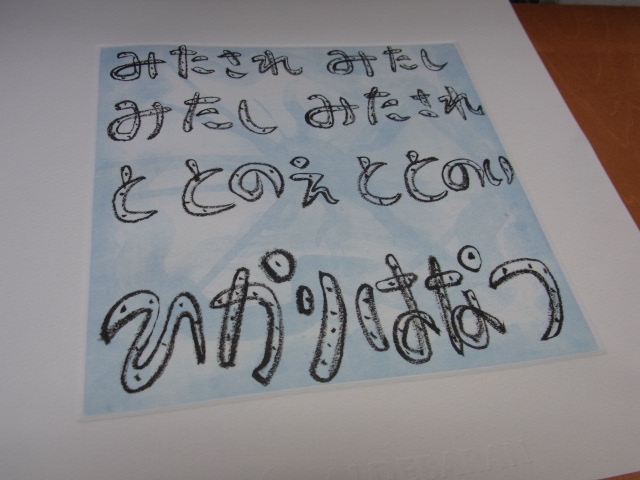 みたされ みたし
みたし みたされ
ととのえ ととのい
ひかりはなつ